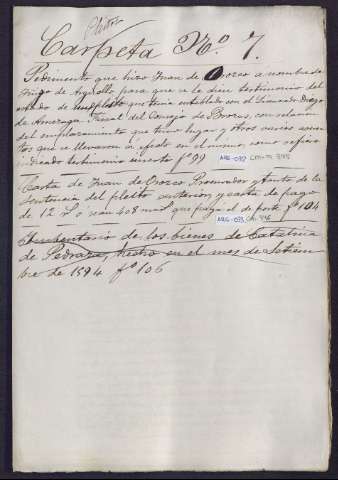 Pleitos
Carpeta Nº. 7.
Pedimento que hizo Juan de Orozco a nombre de
Iñigo de Argüello para que se le dien testimonio del
estado de un pleito que tenia entablado con el Licenciado Diego
de Amezaga Fiscal del Consejo de Ordenes, con relacion
del emplazamiento que tuvo lugar y otros varios asun-
tos que se llevaron a efecto en el mismo, como refiere
indicado testimonio incierto fº 99
ARG-032
Carta de Juan de Orozco Procurador y Auto de la
sentencia del pleito anterior y carta de pago
de 12 rs o sean 408 mrs que pagó el de porte fº 104
ARG-033
Inventario de los bienes de Catalina
de Pedraza, hecho en el mes de Setiem-
bre de 1594 fº 106